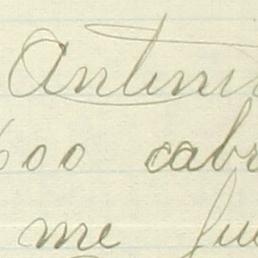 Antoni
600 cabr
me fu